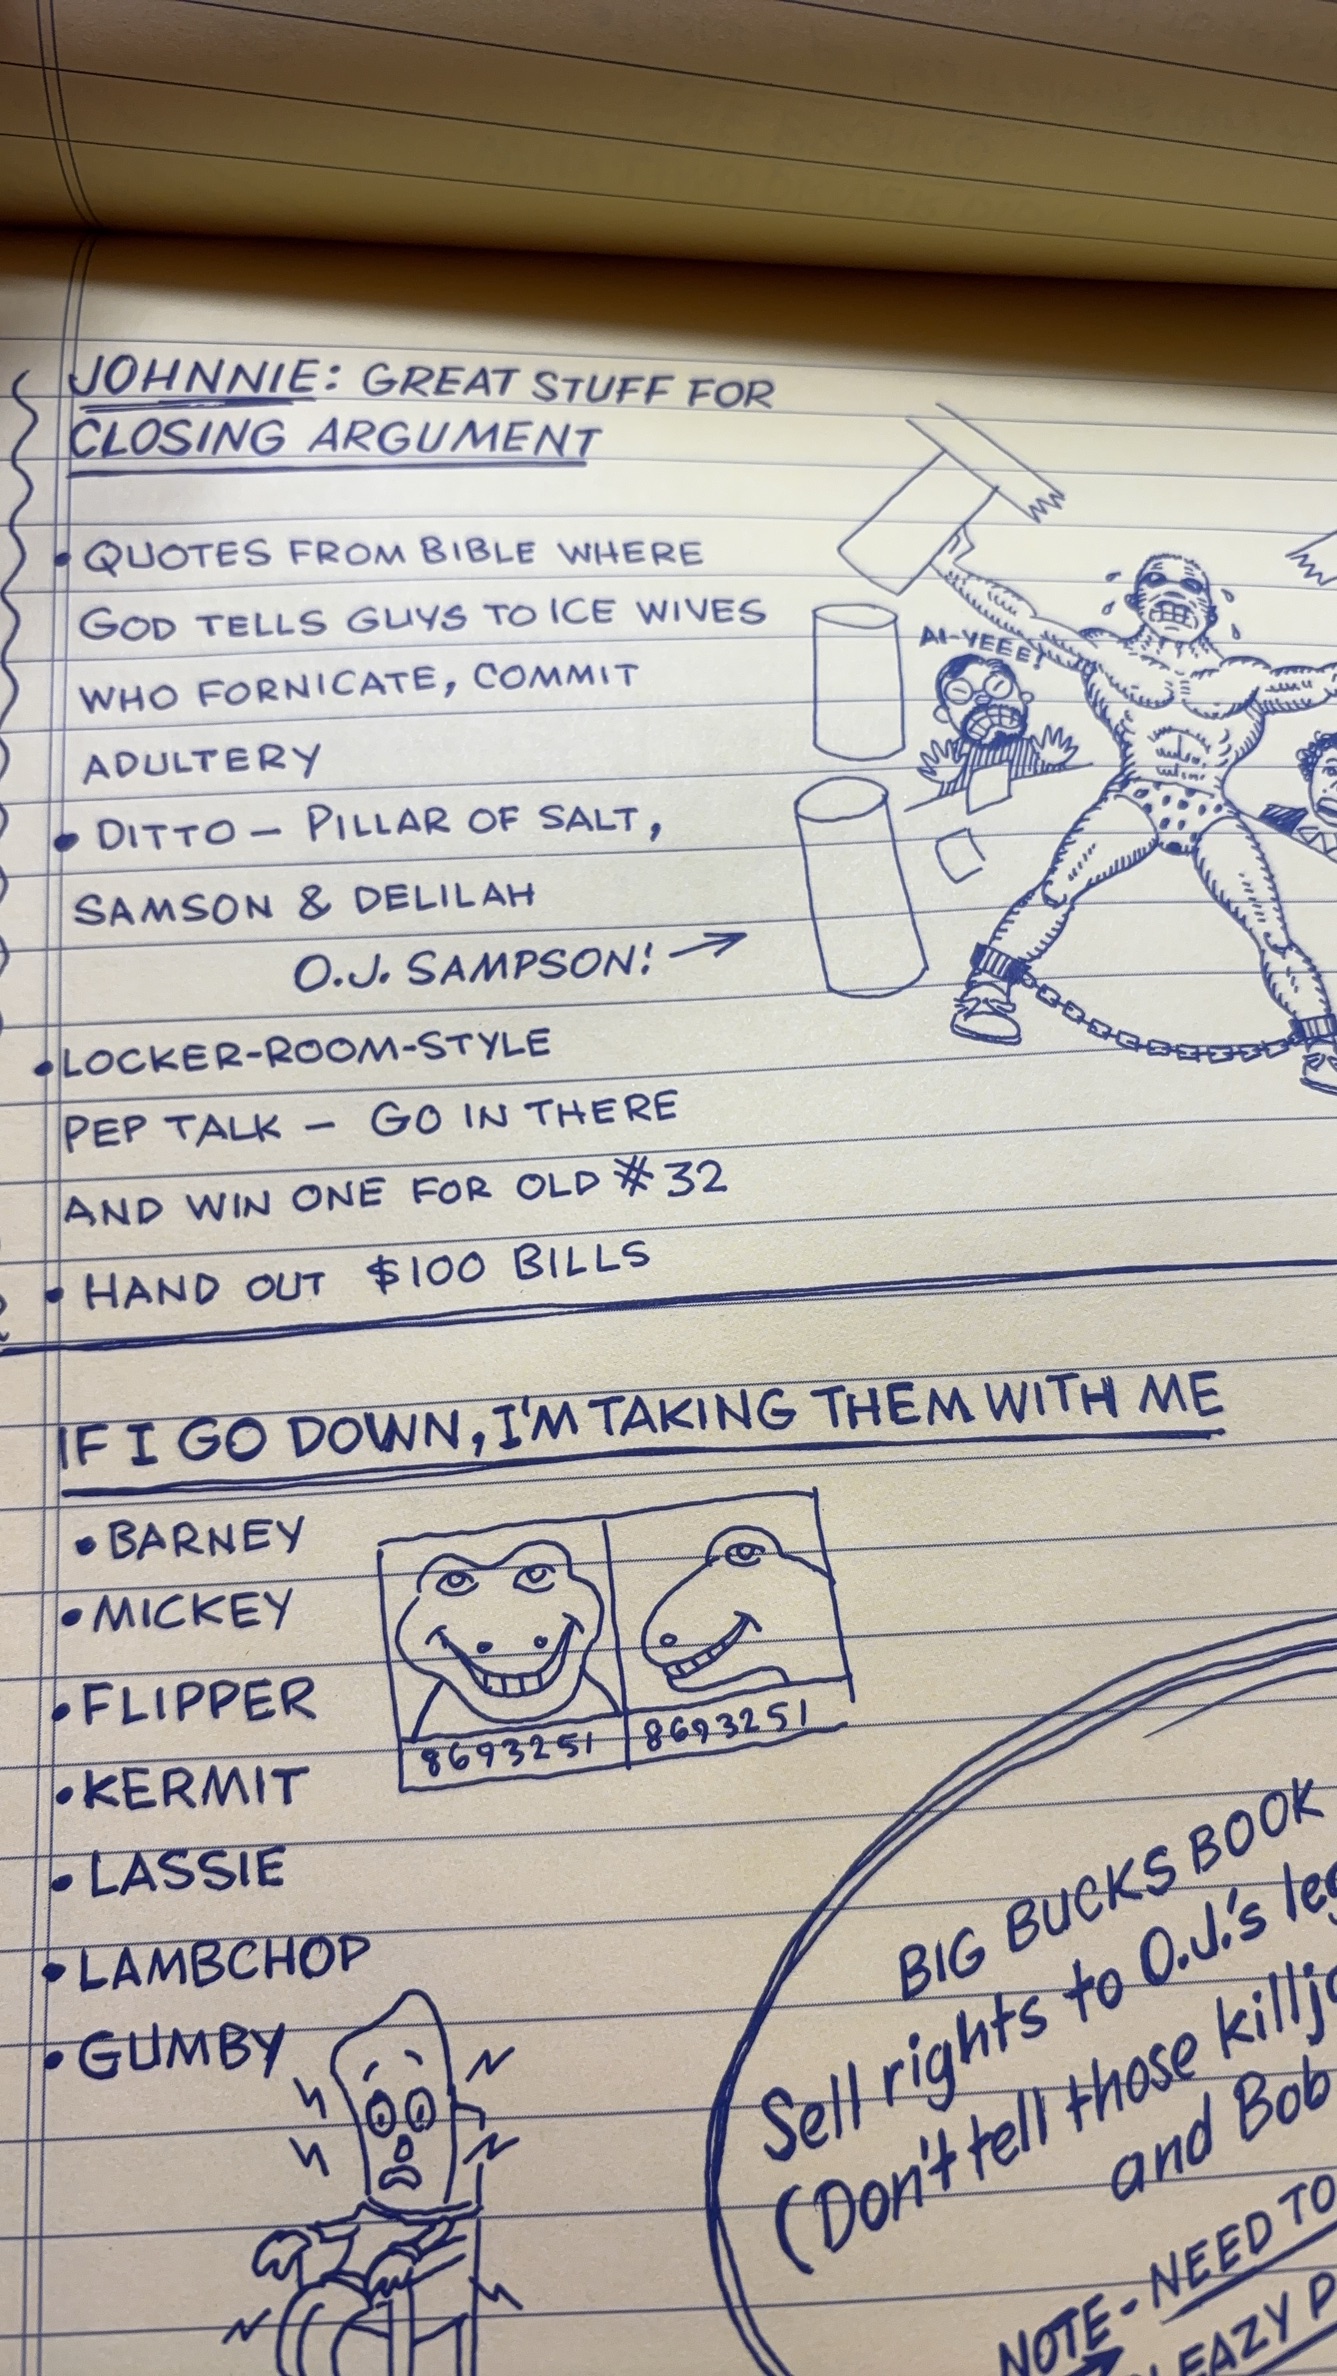 JOHNNIE: GREAT STUFF FOR
CLOSING ARGUMENT
• QUOTES FROM BIBLE WHERE
GOD TELLS GUYS TO ICE WIVES
WHO FORNICATE, COMMIT
ADULTERY
• DITTO – PILLAR OF SALT,
SAMSON & DELILAH
O.J. SAMPSON! →
AI-YEEE!
• LOCKER-ROOM-STYLE
PEP TALK – GO IN THERE
AND WIN ONE FOR OLD #32
• HAND OUT $100 BILLS
IF I GO DOWN, I'M TAKING THEM WITH ME
• BARNEY
• MICKEY
• FLIPPER
• KERMIT
• LASSIE
• LAMBCHOP
• GUMBY
8693251
8693251
BIG BUCKS BOOK
Sell rights to O.J.'s
(Don't tell those
and Bob
NOTE – NEED TO